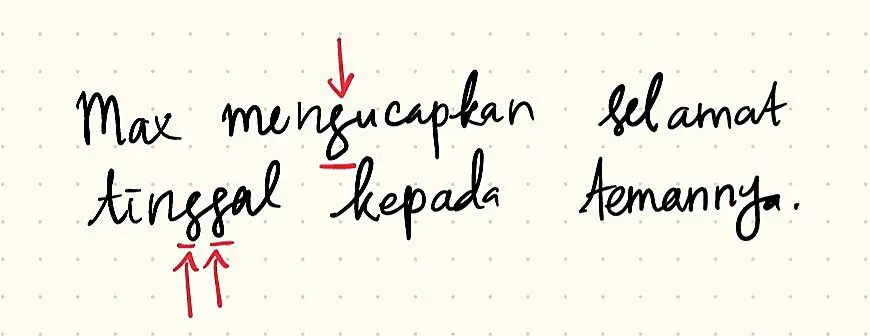 Max mengucapkan selamat
tinggal kepada temannya.